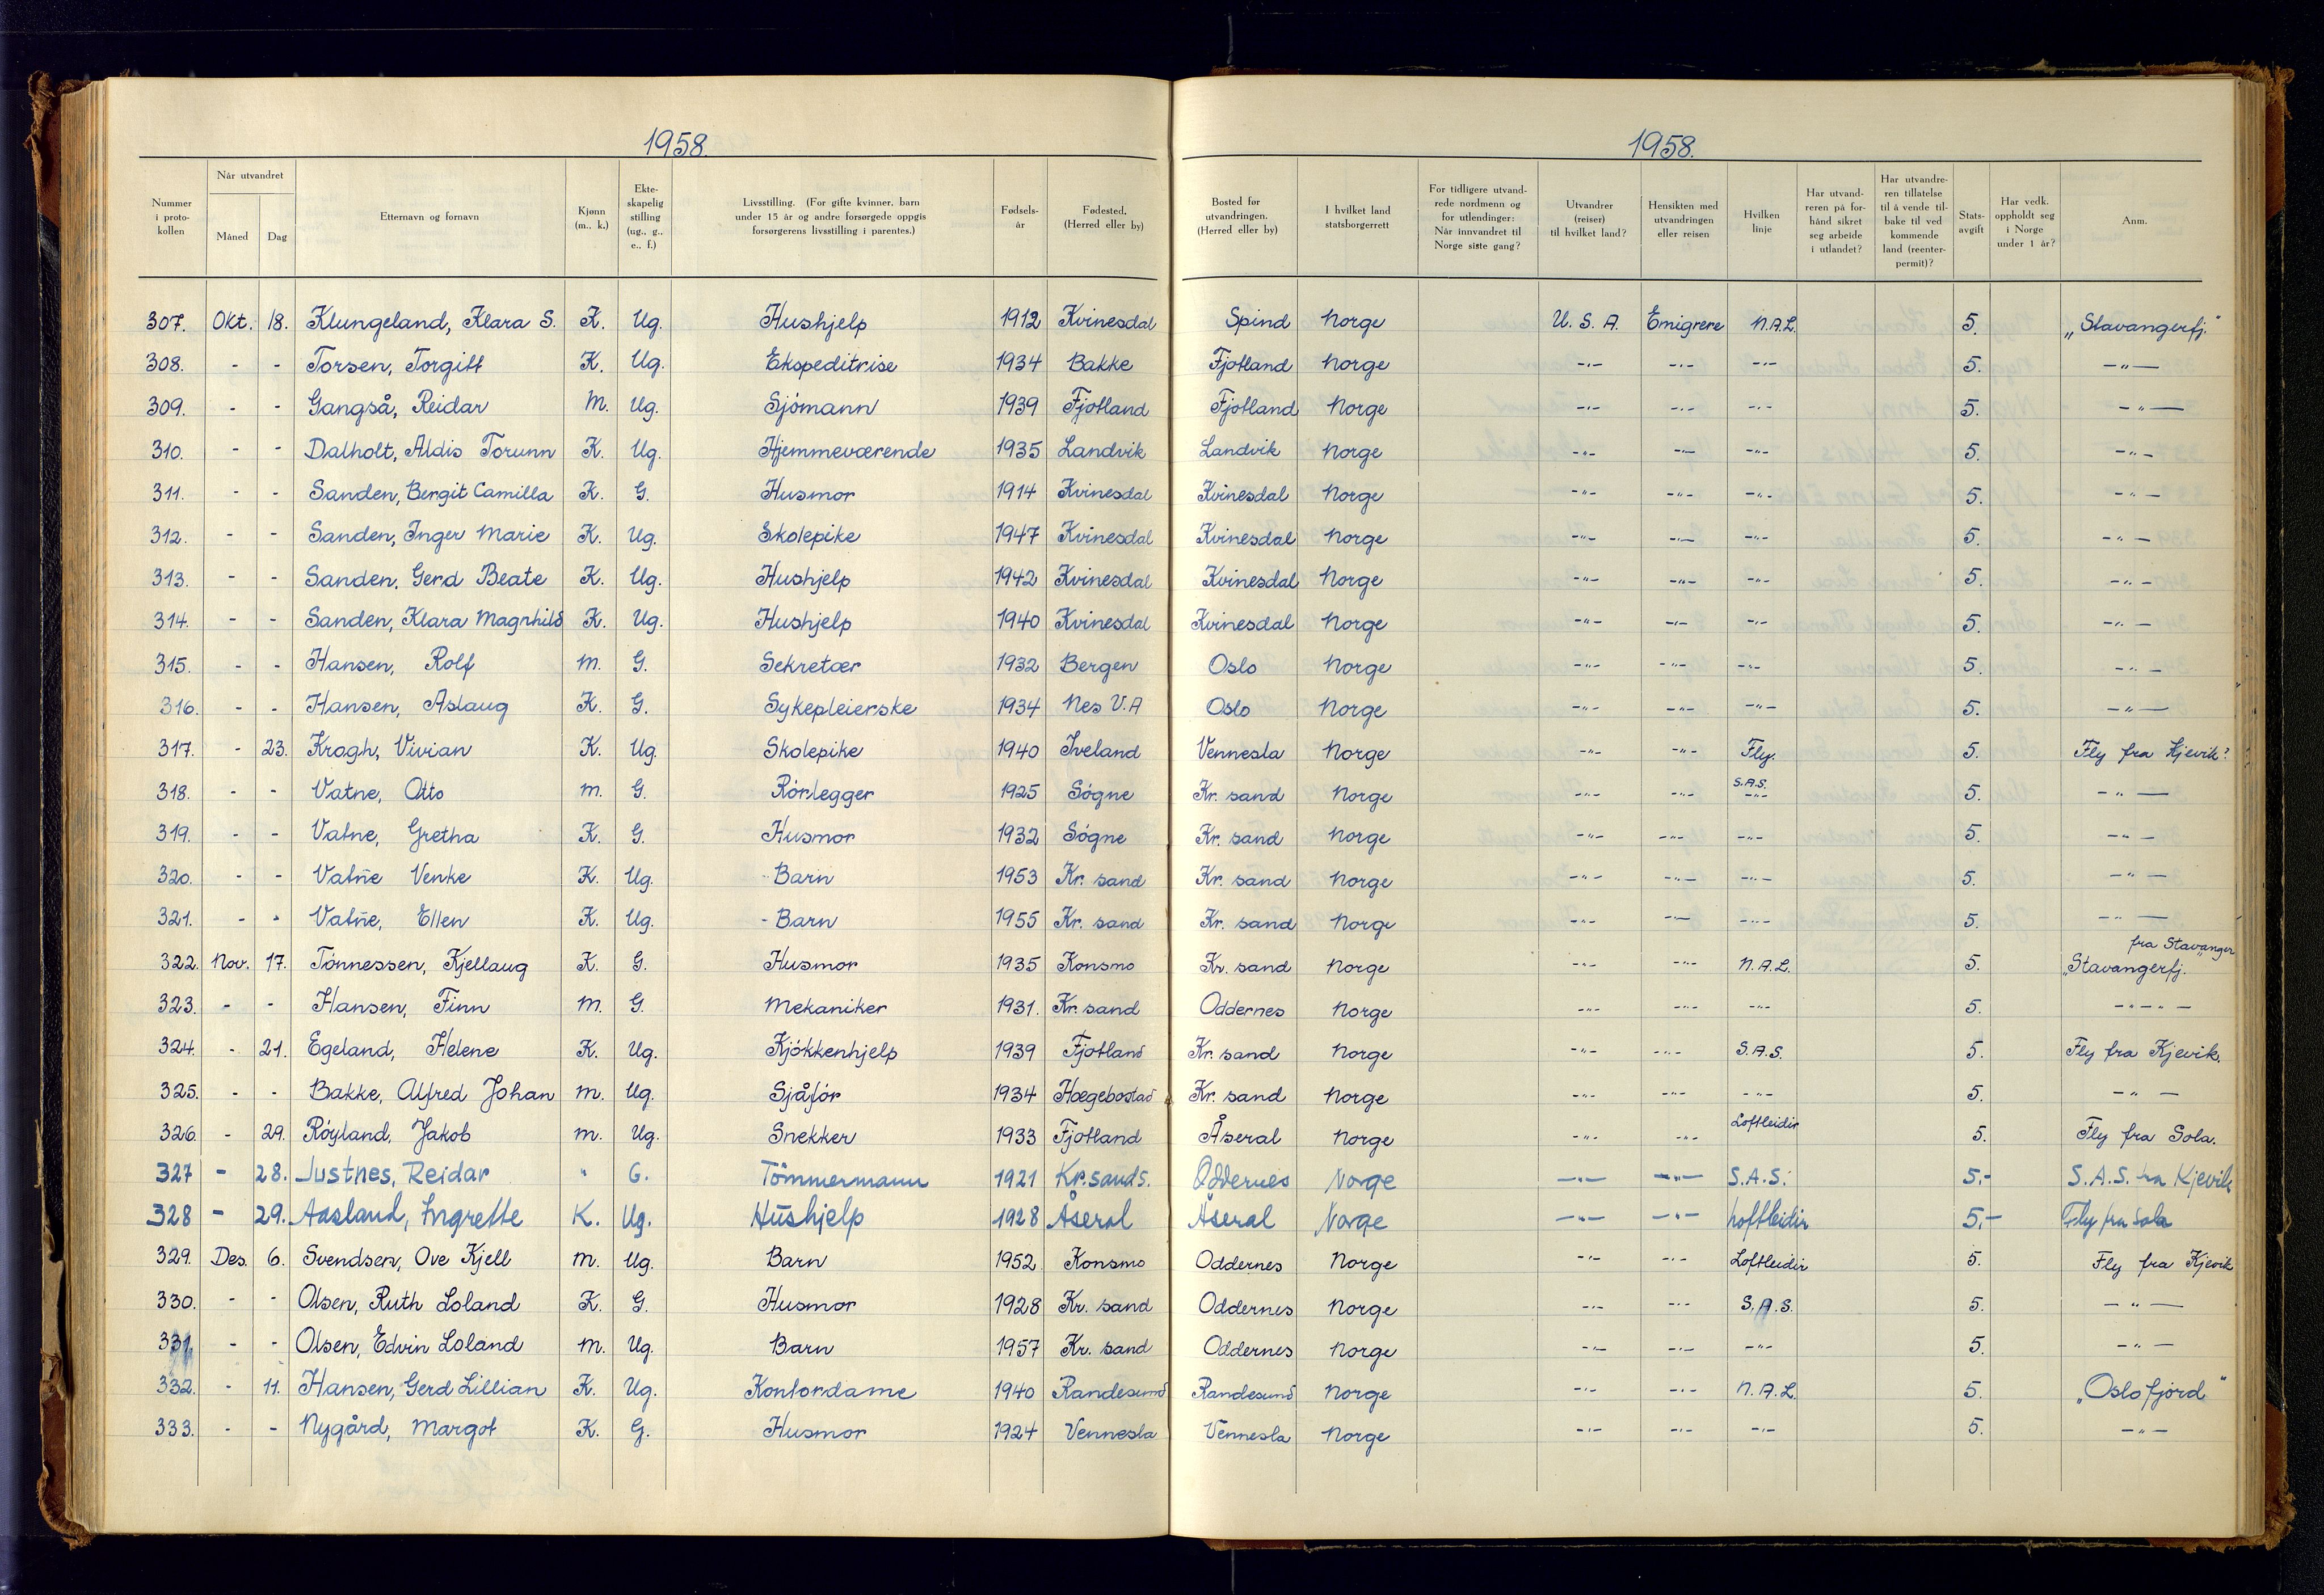 1958. 1958.
Nummer i protokollen Når utvandret Måned Dag Etternavn og fornavn Kjønn (m., k.) Ekteskapelig stilling (ug., g., e., f.) Livsstilling. (For gifte kvinner, barn under 15 år og andre forsørgede oppgis forsørgerens livsstilling i parentes.) Fødselsår Fødested. (Herred eller by) Bosted før utvandringen. (Herred eller by) I hvilket land statsborgerrett For tidligere utvandrede nordmenn og for utlendinger: Når innvandret til Norge siste gang? Utvandrer (reiser) til hvilket land? Hensikten med utvandringen eller reisen Hvilken linje Har utvandreren på forhånd sikret seg arbeide i utlandet? Har utvandreren tillatelse til å vende tilbake til ved kommende land (reenterpermit)? Statsavgift Har vedk. oppholdt seg i Norge under 1 år? Anm.
307. Okt. 18. Klungeland, Klara S. K. Ug. Hushjelp 1912 Kvinesdal Spind Norge U.S.A. Emigrere N.A.L. 5. „Stavangerfj."
308. - - Torsen, Torgitt K. Ug. Ekspeditrise 1934 Bakke Fjotland Norge -"- -"- -"- 5. -"-
309. - - Gangså, Reidar M. Ug. Sjómann 1939 Fjotland Fjotland Norge -"- -"- -"- 5. -"-
310. - - Dalholt, Aldis Torunn K. Ug. Hjemmeværende 1935 Landvik Landvik Norge -"- -"- -"- 5. -"-
311. - - Sanden, Bergit Camilla K. G. Husmor 1914 Kvinesdal Kvinesdal Norge -"- -"- -"- 5. -"-
312. - - Sanden, Inger Marie K. Ug. Skolepike 1947 Kvinesdal Kvinesdal Norge -"- -"- -"- 5. -"-
313. - - Sanden, Gerd Beate K. Ug. Hushjelp 1942 Kvinesdal Kvinesdal Norge -"- -"- -"- 5. -"-
314. - - Sanden, Klara Magnhild K. Ug. Hushjelp 1940 Kvinesdal Kvinesdal Norge -"- -"- -"- 5. -"-
315. - - Hansen, Rolf M. G. Sekretær 1932 Bergen Oslo Norge -"- -"- -"- 5. -"-
316. - - Hansen, Aslaug K. G. Sykepleierske 1934 Nes V.A Oslo Norge -"- -"- -"- 5. -"-
317. - 23. Krogh, Vivian K. Ug. Skolepike 1940 Iveland Vennesla Norge -"- -"- Fly. 5. Fly fra Kjevik?
318. - - Vatne, Otto M. G. Rórlegger 1925 Sógne Kr. sand Norge -"- -"- S.A.S. -"- 5. -"-
319. - - Vatne, Gretha K. G. Husmor 1932 Sógne Kr. sand Norge -"- -"- -"- 5. -"-
320. - - Vatne Venke K. Ug. - Barn 1953 Kr. sand Kr. sand Norge -"- -"- -"- 5. -"-
321. - - Vatne, Ellen K. Ug. - Barn 1955 Kr. sand Kr. sand Norge -"- -"- -"- 5. -"-
322. Nov. 17. Tónnessen, Kjellaug K. G. Husmor 1935 Konsmo Kr. sand Norge -"- -"- N.A.L. 5. „Stavangerfj." fra Stavanger
323. - - Hansen, Finn M. G. Mekaniker 1931. Kr. sand Oddernes Norge -"- -"- -"- 5. -"-"-
324. - 21. Egeland, Helene K. Ug. Kjókkenhjelp 1939 Fjotland Kr. sand Norge -"- -"- S.A.S. 5. Fly fra Kjevik.
325. - - Bakke, Alfred Johan M. Ug. Sjåfór 1934 Hægebostad Kr. sand Norge -"- -"- -"- 5. -"-
326. - 29. Róyland, Jakob M. Ug. Snekker 1933 Fjotland Åseral Norge -"- -"- Loftleidir 5. Fly fra Sola.
327 - 28. Justnes, Reidar " G. Tömmermann 1921 Kr.sands. Oddernes Norge -"- -"- S.A.S. 5.- S.A.S. fra Kjevik
328 - 29. Aasland, Ingrette K. Ug. Hushjelp 1928 Åseral Åseral Norge -"- -"- Loftleidir 5.- Fly fra Sola
329. Des. 6. Svendsen, Ove Kjell M. Ug. Barn 1952 Konsmo Oddernes Norge -"- -"- Loftleidir 5. Fly fra Kjevik
330. - - Olsen, Ruth Loland K. G. Husmor 1928 Kr. sand Oddernes Norge -"- -"- S.A.S. 5. -"-
331. - - Olsen, Edvin Loland M. Ug. Barn 1957 Kr. sand Oddernes Norge -"- -"- -"- 5. -"-
332. - 11. Hansen, Gerd Lillian K. Ug. Kontordame 1940 Randesund Randesund Norge -"- -"- N.A.L. 5. „Oslofjord"
333. - - Nygård, Margot K. G. Husmor 1924 Vennesla Vennesla Norge -"- -"- -"- 5. -"-